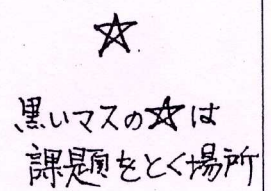 ☆
黒いマスの☆は
課題をとく場所